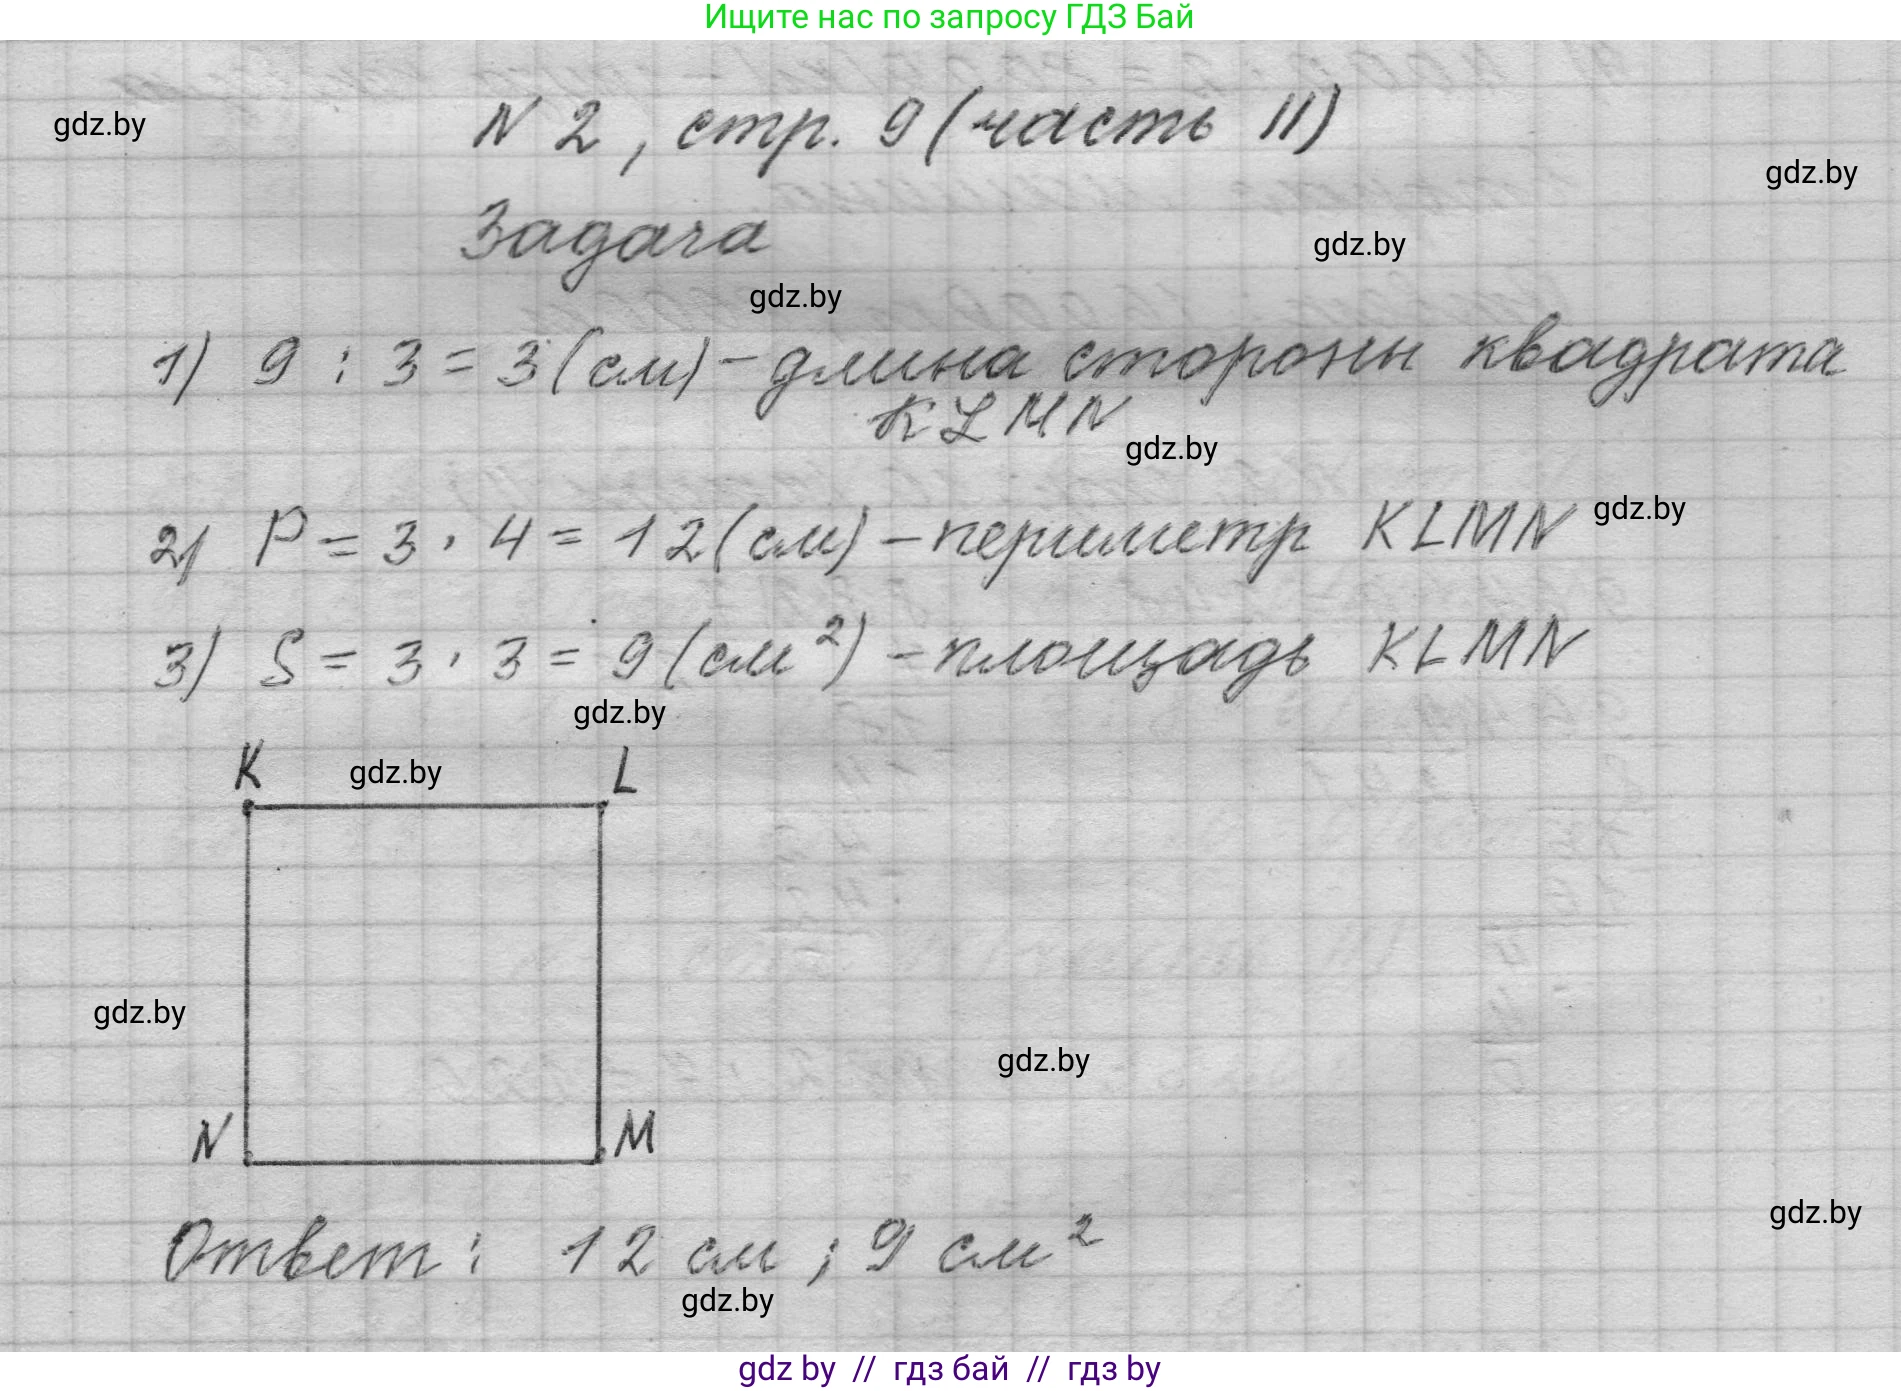 Ищите нас по запросу ГДЗ Бай
N 2, стр. 9 (часть II)
gdz.by
gdz.by
Задача
gdz.by
gdz.by
1) 9 : 3 = 3 (см) - длина стороны квадрата
KLMN
gdz.by
gdz.by
2) P = 3 · 4 = 12 (см) - периметр KLMN
3) S = 3 · 3 = 9 (см²) - площадь KLMN
gdz.by
K L
gdz.by
gdz.by
gdz.by
N M
gdz.by
Ответ: 12 см ; 9 см²
gdz.by
gdz by // гдз бай // гдз by